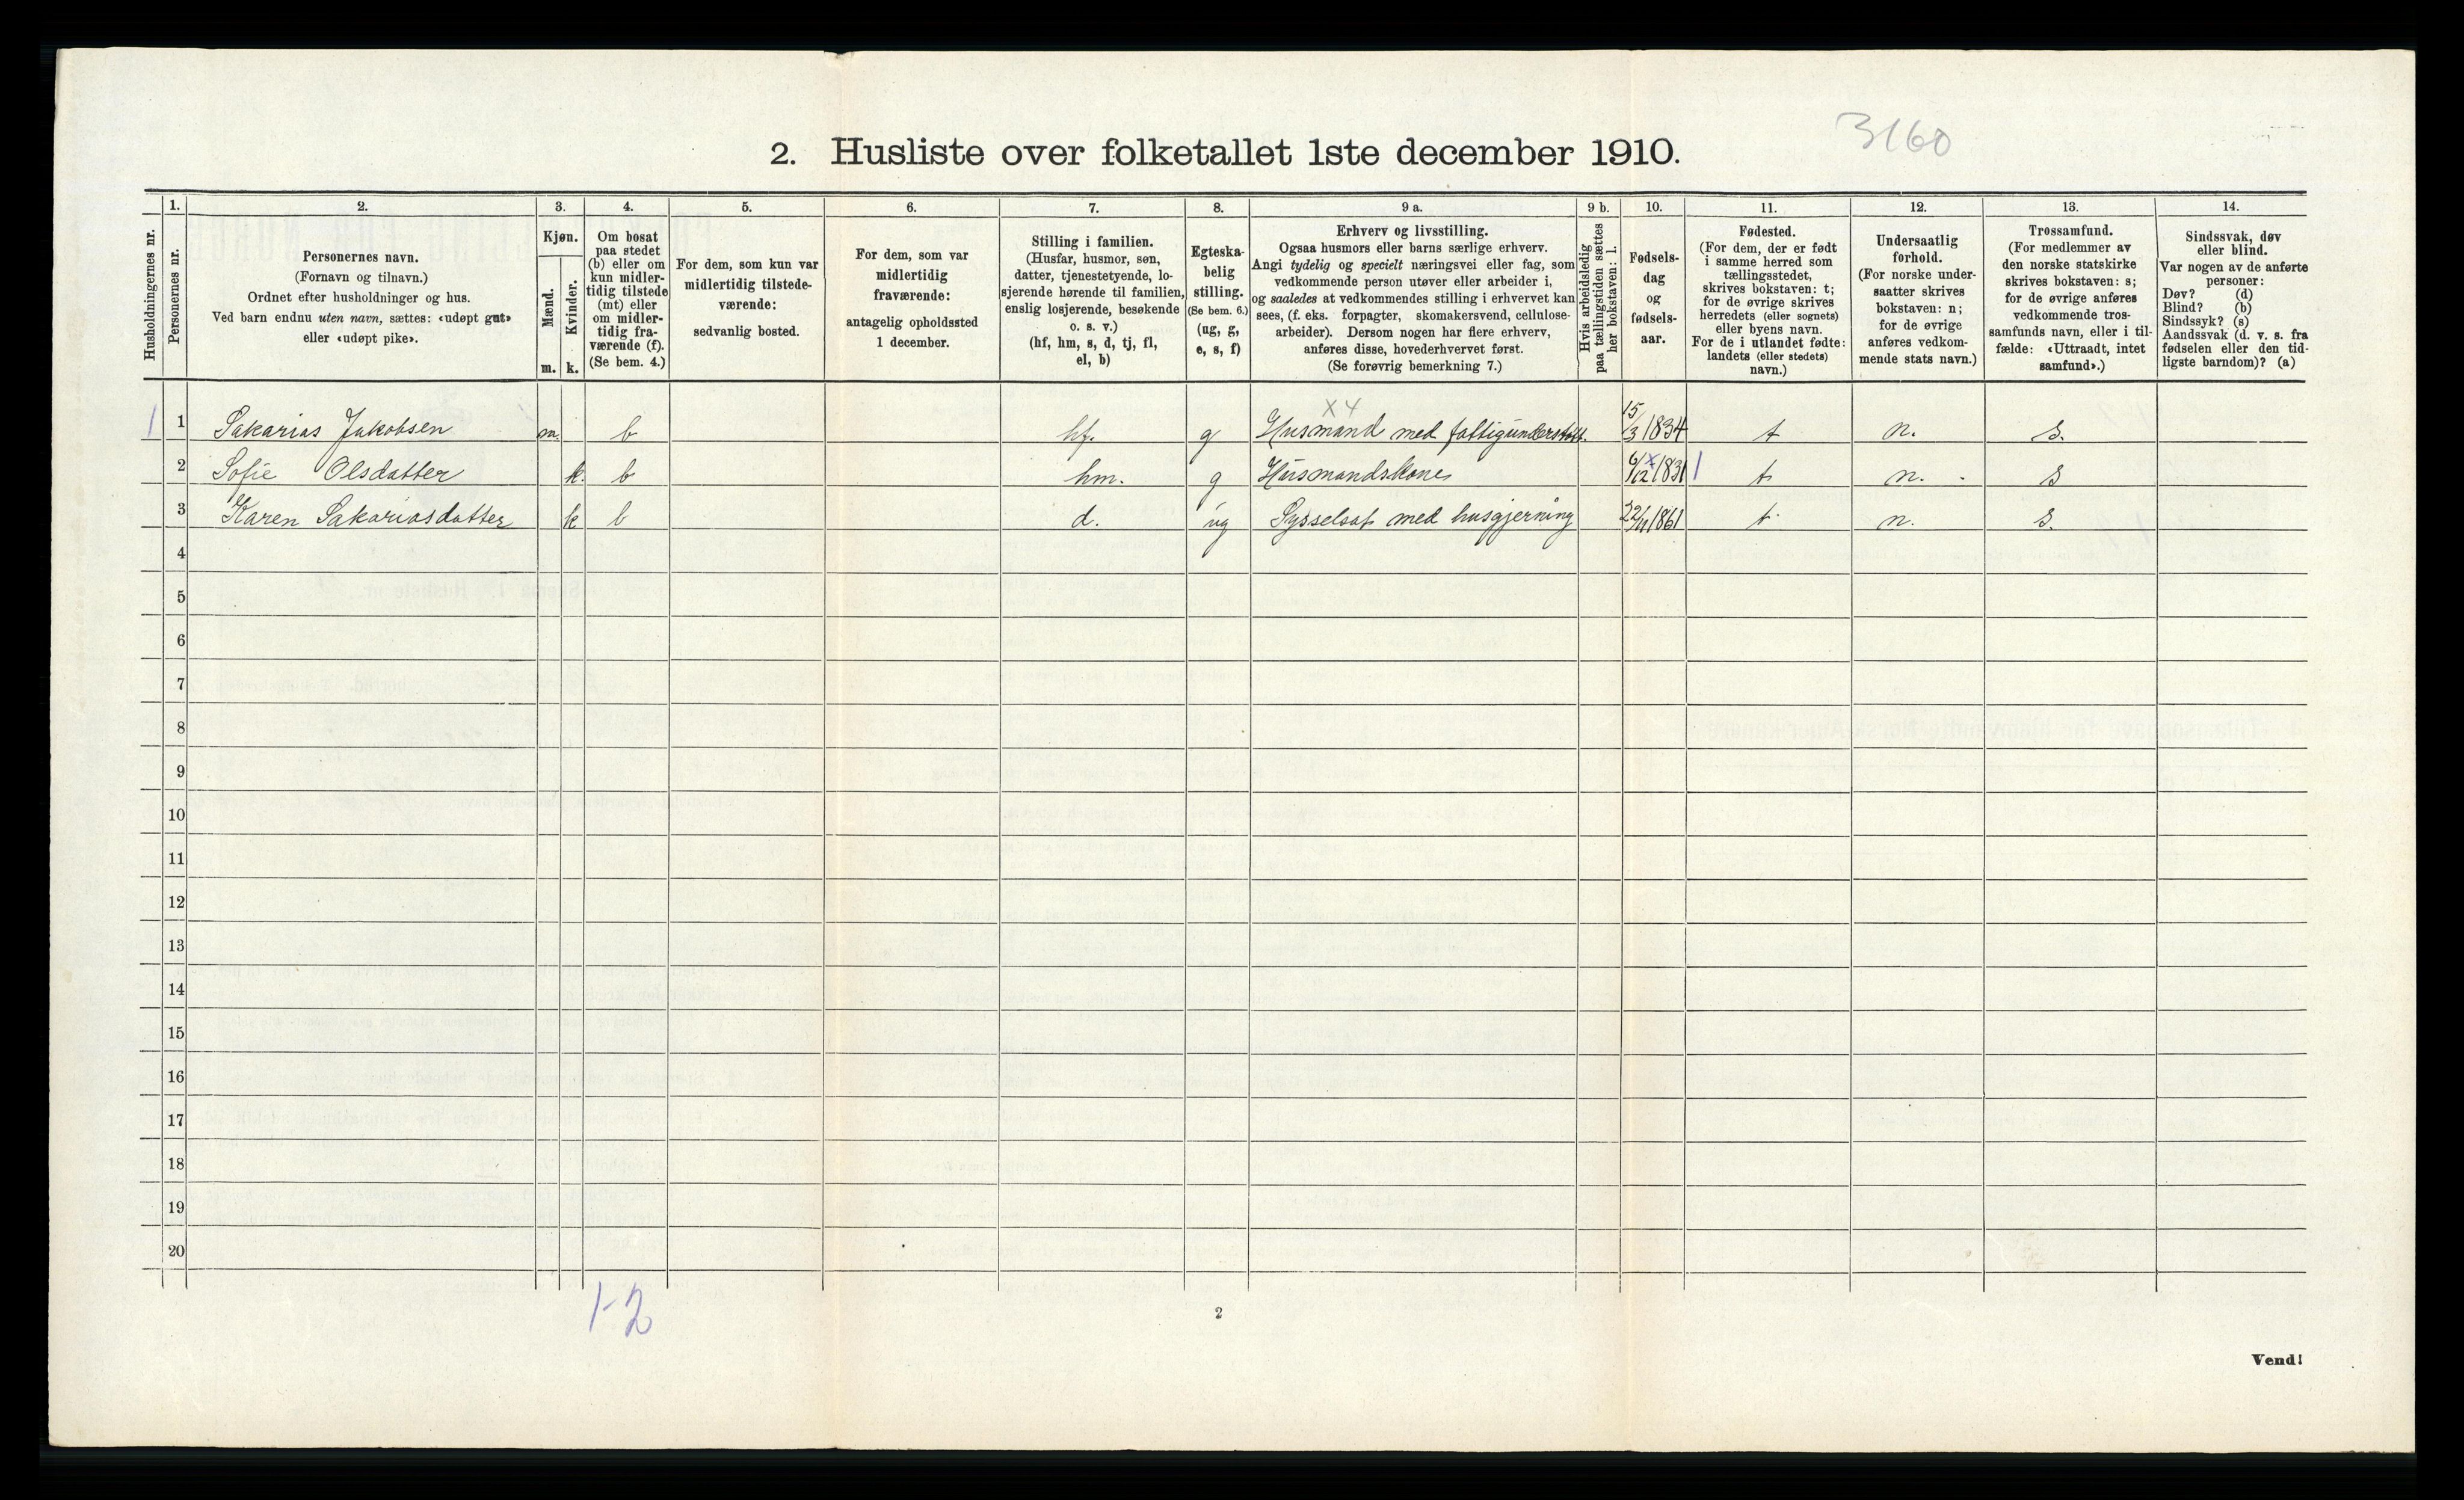 3160
2. Husliste over folketallet 1ste december 1910.
Husholdningernes nr.
1.
Personernes nr.
2.
Personernes navn.
(Fornavn og tilnavn.)
Ordnet efter husholdninger og hus.
Ved barn endnu uten navn, sættes: «udøpt gut»
eller «udøpt pike».
3.
Kjøn.
Mænd.
Kvinder.
m. k.
4.
Om bosat
paa stedet
(b) eller om
kun midler-
tidig tilstede
(mt) eller
om midler-
tidig fra-
værende (f).
(Se bem. 4.)
5.
For dem, som kun var
midlertidig tilstede-
værende:
sedvanlig bosted.
6.
For dem, som var
midlertidig
fraværende:
antagelig opholdssted
1 december.
7.
Stilling i familien.
(Husfar, husmor, søn,
datter, tjenestetyende, lo-
sjerende hørende til familien,
enslig losjerende, besøkende
o. s. v.)
(hf, hm, s, d, tj, fl,
el, b)
8.
Egteska-
belig
stilling.
(Se bem. 6.)
(ug, g,
e, s, f)
9 a.
Erhverv og livsstilling.
Ogsaa husmors eller barns særlige erhverv.
Angi tydelig og specielt næringsvei eller fag, som
vedkommende person utøver eller arbeider i,
og saaledes at vedkommendes stilling i erhvervet kan
sees, (f. eks. forpagter, skomakersvend, cellulose-
arbeider). Dersom nogen har flere erhverv,
anføres disse, hovederhvervet først.
(Se forøvrig bemerkning 7.)
9 b.
Hvis arbeidsledig
paa tællingstiden sættes
her bokstaven: l.
10.
Fødsels-
dag
og
fødsels-
aar.
11.
Fødested.
(For dem, der er født
i samme herred som
tællingsstedet,
skrives bokstaven: t;
for de øvrige skrives
herredets (eller sognets)
eller byens navn.
For de i utlandet fødte:
landets (eller stedets)
navn.)
12.
Undersaatlig
forhold.
(For norske under-
saatter skrives
bokstaven: n;
for de øvrige
anføres vedkom-
mende stats navn.)
13.
Trossamfund.
(For medlemmer av
den norske statskirke
skrives bokstaven: s;
for de øvrige anføres
vedkommende tros-
samfunds navn, eller i til-
fælde: «Uttraadt, intet
samfund».)
14.
Sindssvak, døv
eller blind.
Var nogen av de anførte
personer:
Døv? (d)
Blind? (b)
Sindssyk? (s)
Aandssvak (d. v. s. fra
fødselen eller den tid-
ligste barndom)? (a)
X 4
1 1 Sakarias Jakobsen m. b hf. g Husmand med fattigunderstøtt. 15/3 1834 t n. s.
2 Sofie Olsdatter k. b hm. g Husmandskone 6/12 X 1831 1 t n. s
3 Karen Sakariasdatter k b d. ug Sysselsat med husgjerning 22/11 1861 t n. s.
4
5
6
7
8
9
10
11
12
13
14
15
16
17
18
19
20
1-2
2
Vend!